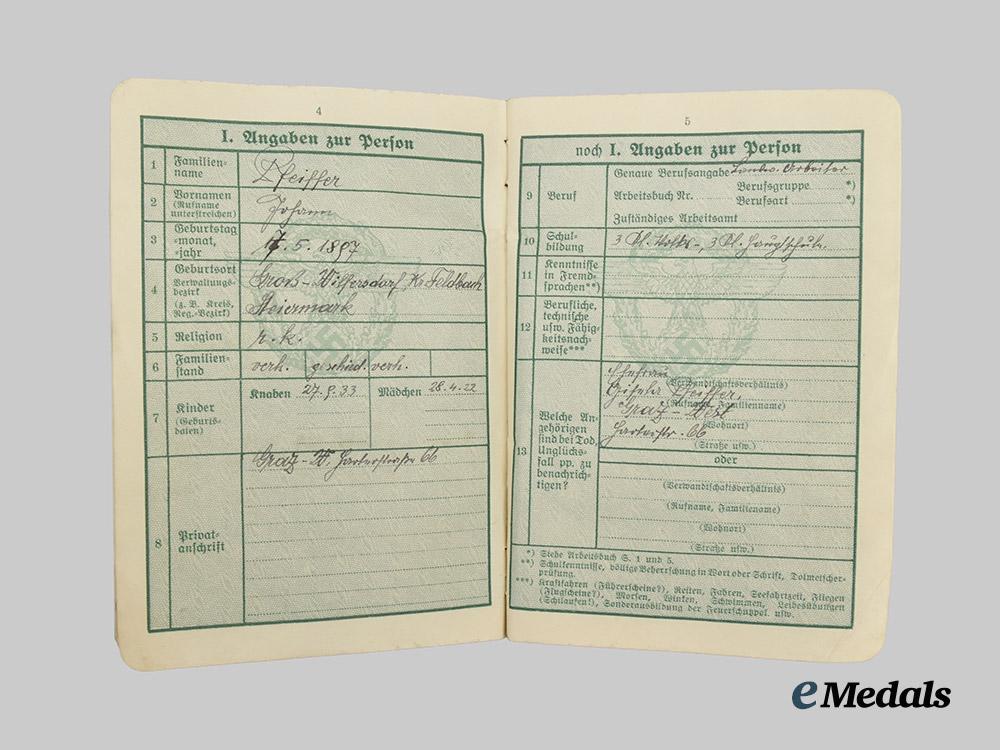 4
I. Angaben zur Person
1 Familien-
name
Pfeiffer
2 Vornamen
(Rufname
unterstreichen)
Johann
3 Geburtstag
-monat,
-jahr
17.5.1897
4 Geburtsort
Verwaltungs-
bezirk
(z. B. Kreis,
Reg.-Bezirk)
Gross-Wilfersdorf, Kr. Feldbach
Steiermark
5 Religion
r. k.
6 Familien-
stand
verh. geschied. verh.
7 Kinder
(Geburts-
daten)
Knaben 27.9.33 Mädchen 28.4.22
8 Privat-
anschrift
Graz-W. Harterstraße 66
5
noch I. Angaben zur Person
9 Beruf
Genaue Berufsangabe Landw. Arbeiter
Arbeitsbuch Nr. Berufsgruppe *)
Berufsart *)
Zuständiges Arbeitsamt
10 Schul-
bildung
3 Kl. Volks-, 3 Kl. Hauptschule.
11 Kenntnisse
in Fremd-
sprachen**)
12 Berufliche,
technische
usw. Fähig-
keitsnach-
weise***
13 Welche An-
gehörigen
sind bei Tod,
Unglücks-
fall pp. zu
benachrich-
tigen?
Ehefrau
(Verwandtschaftsverhältnis)
Pfeiffer.
(Rufname, Familienname)
Graz-West
(Wohnort)
Harterstr. 66
(Straße usw.)
oder
(Verwandtschaftsverhältnis)
(Rufname, Familienname)
(Wohnort)
(Straße usw.)
*) Siehe Arbeitsbuch S. 1 und 5.
**) Schulkenntnisse, völlige Beherrschung in Wort oder Schrift, Dolmetscher-
prüfung.
***) Kraftfahren (Führerscheine?), Reiten, Fahren, Seefahrtzeit, Fliegen
(Flugscheine?), Morsen, Winken, Schwimmen, Leibesübungen
(Schilaufen!), Sonderausbildung der Feuerschutzpol. usw.
eMedals